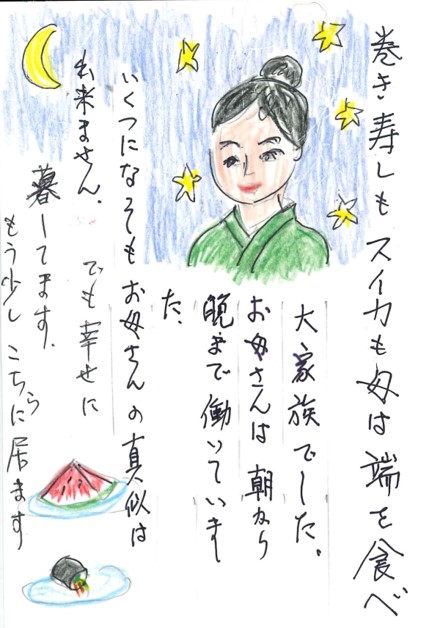 巻き寿しもスイカも母は端を食べ
大家族でした。
お母さんは朝から
晩まで働いていまし
た。
いくつになってもお母さんの真似は
出来ません。
でも幸せに
暮してます。
もう少しこちらに居ます